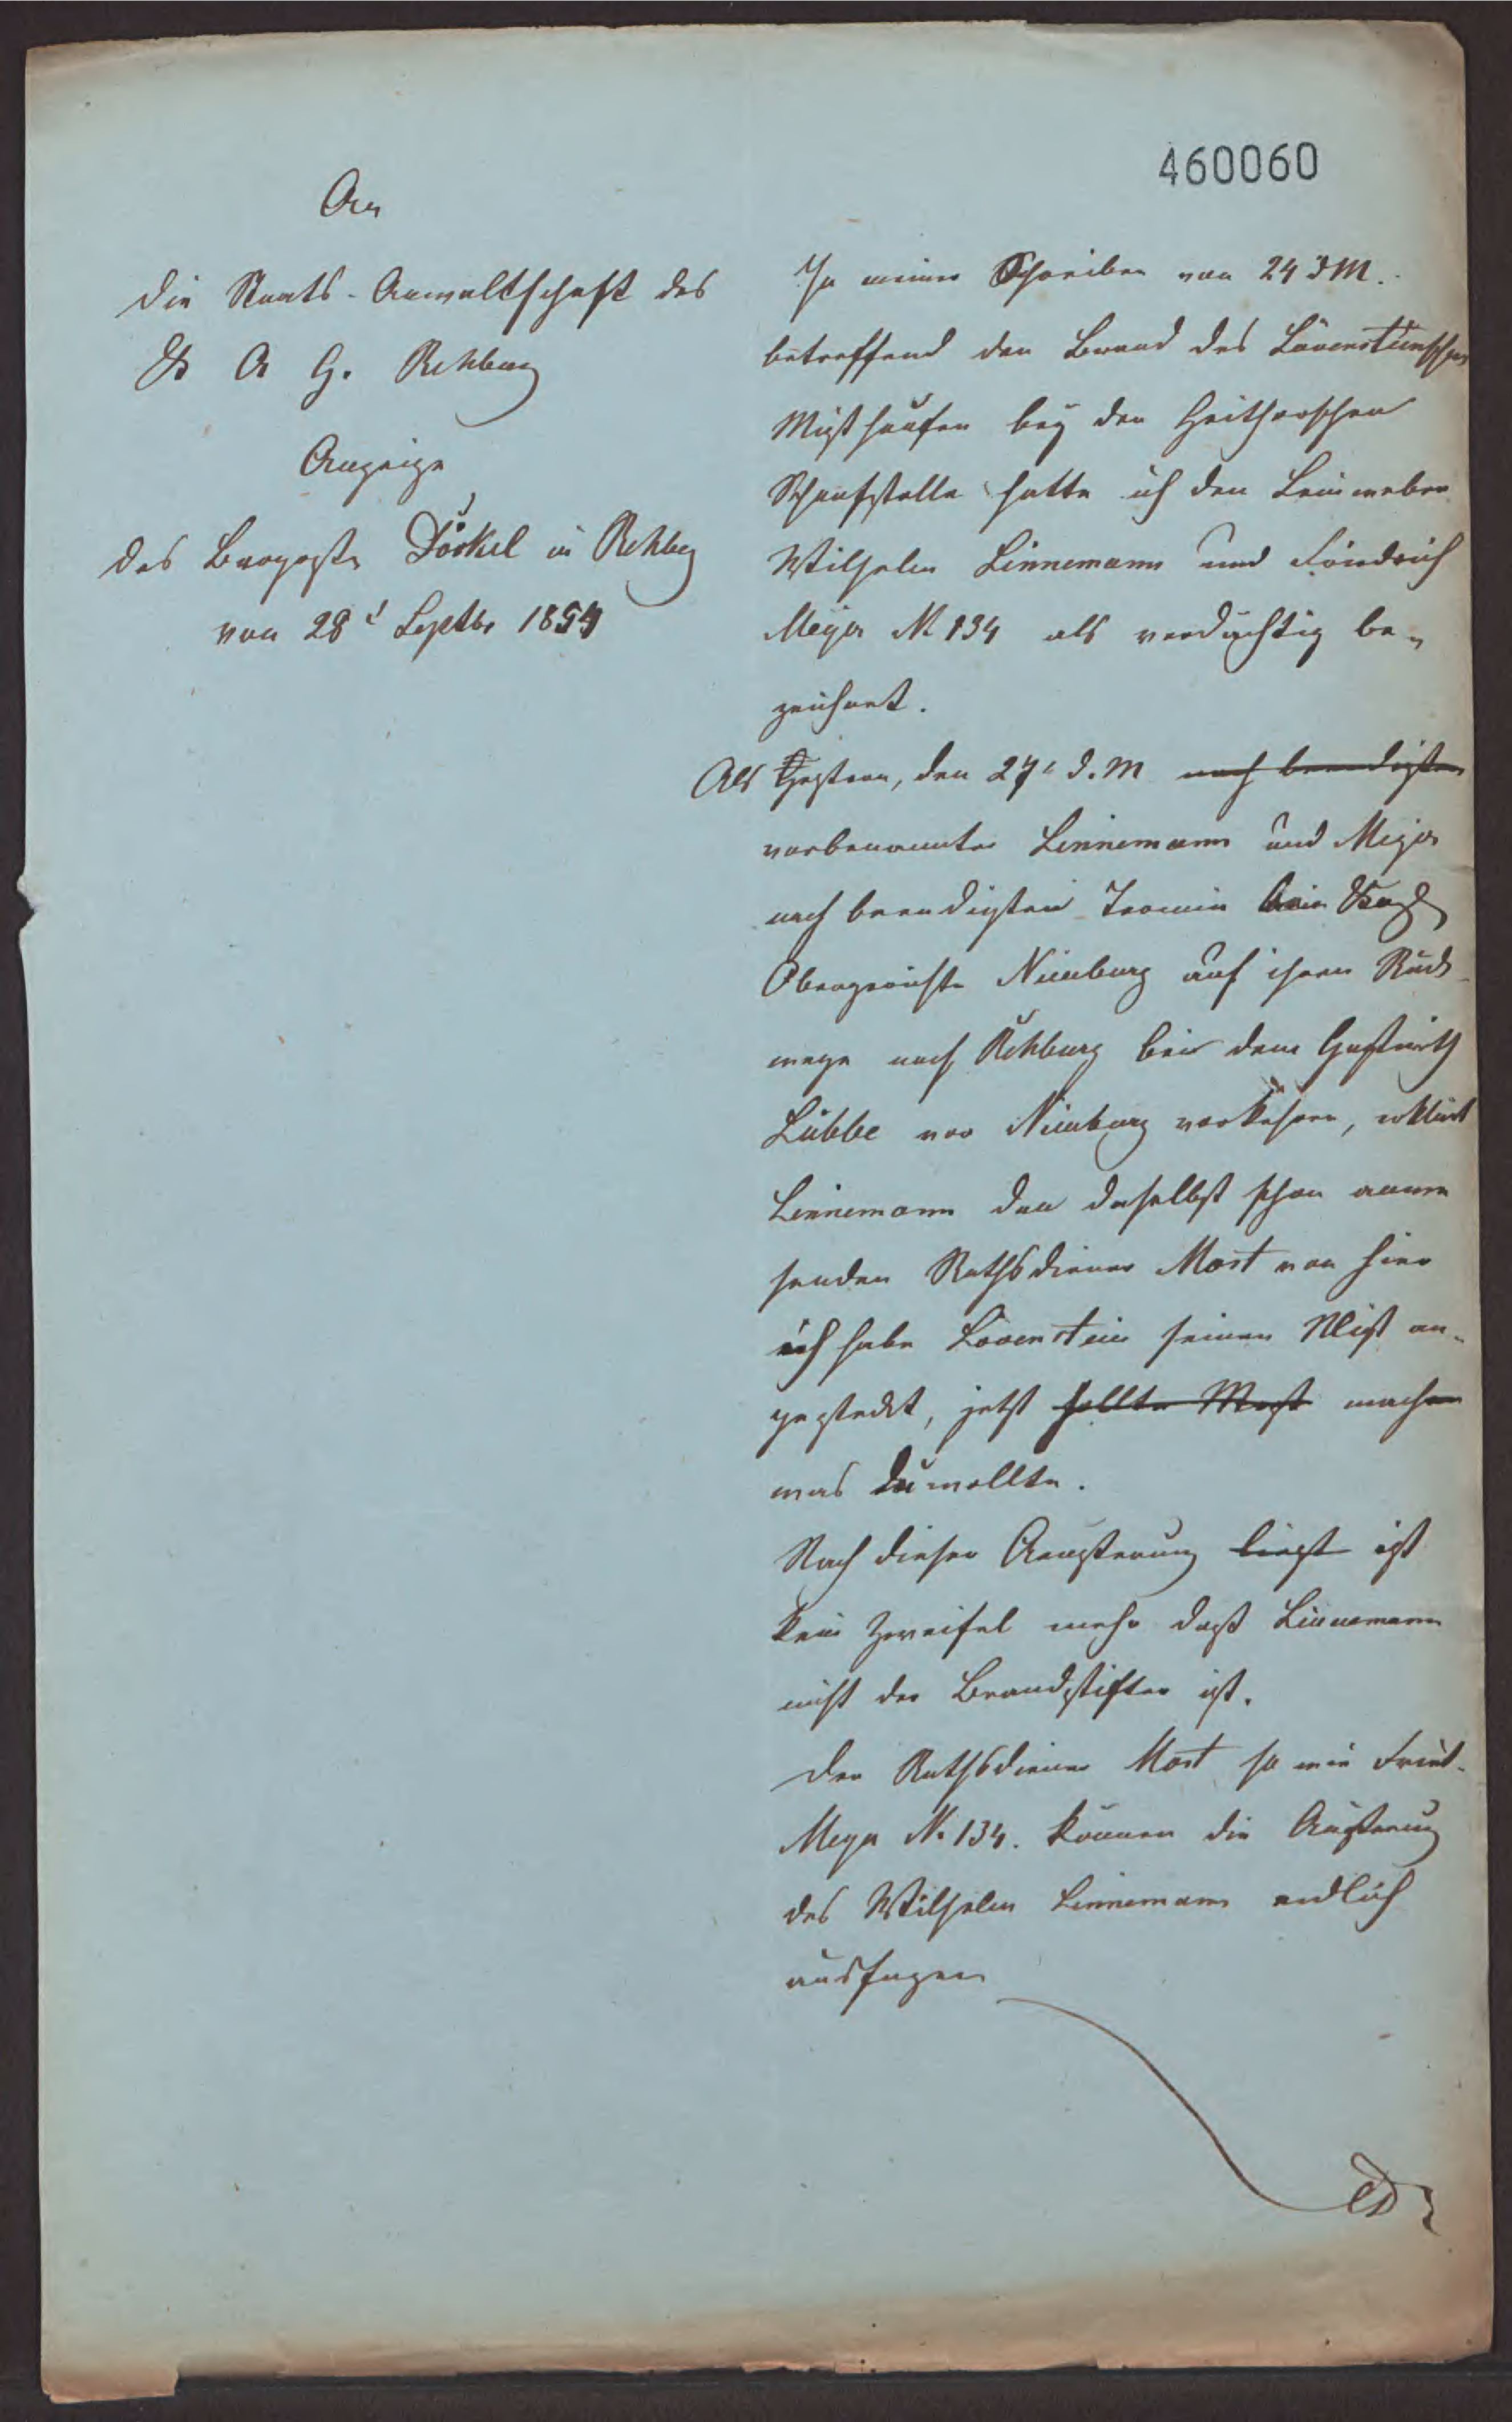 460060
An
die Staats-Anwaltschaft des
K A G. Rehburg
Anzeige
des Burgvogts Döskel in Rehbg
von 28t Septbr 1854
In meiner Schreiben von 24 d M.
betreffend den Brand des Löwensteinschen
Misthaufen bey den Heitherschen
Schaafstalle hatte ich den Leinweber
Wilhelm Linnemann und Friedrich
Meyer N 134 als verdächtig be-
zeichnet.
Als Gestern, den 27t d. M nach beendigten
vorbenannter Linnemann und Meyer
nach beendigten Termin beim
Obergericht Nienburg auf ihren Rück-
wege nach Rehburg bei dem Gastwirth
Lübbe vor Nienburg vorkehren, erklärt
Linnemann den daselbst schon anwe
senden Rathsdiener Most von hier
ich habe Löwenstein seinen Mist an-
gesteckt, jetzt sollte Most machen
was du wollte.
Nach dieser Aeusserung liegt ist
kein Zweifel mehr daß Linnemann
nicht der Brandstifter ist.
Der Rathsdiener Most so wie Fried.
Meyer N. 134. können die Äusserung
des Wilhelm Linnemann eidlich
aussagen